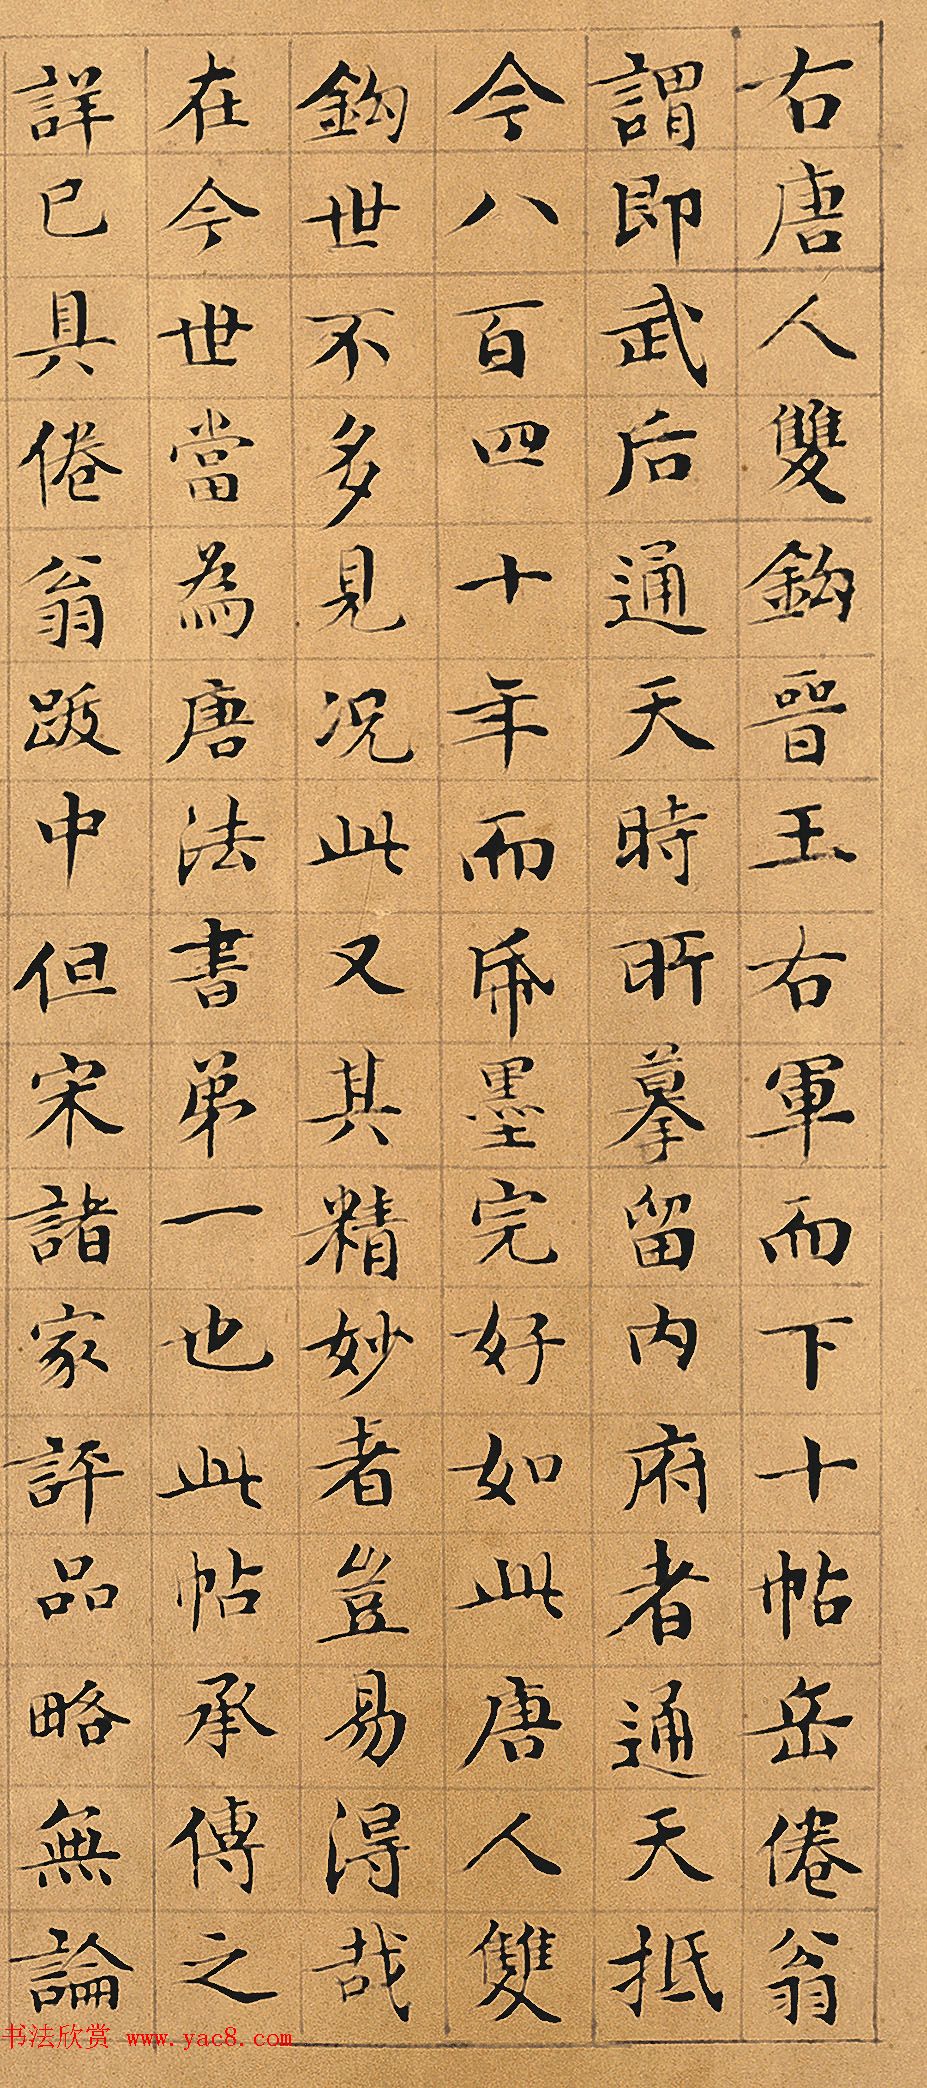 右唐人雙鈎晉王右軍而下十帖岳倦翁
謂即武后通天時所摹留内府者通天抵
今八百四十年而帋墨完好如此唐人雙
鈎世不多見况此又其精妙者豈易得哉
在今世當為唐法書弟一也此帖承傳之
詳已具倦翁跋中但宋諸家評品略無論
书法欣赏 www.yac8.com